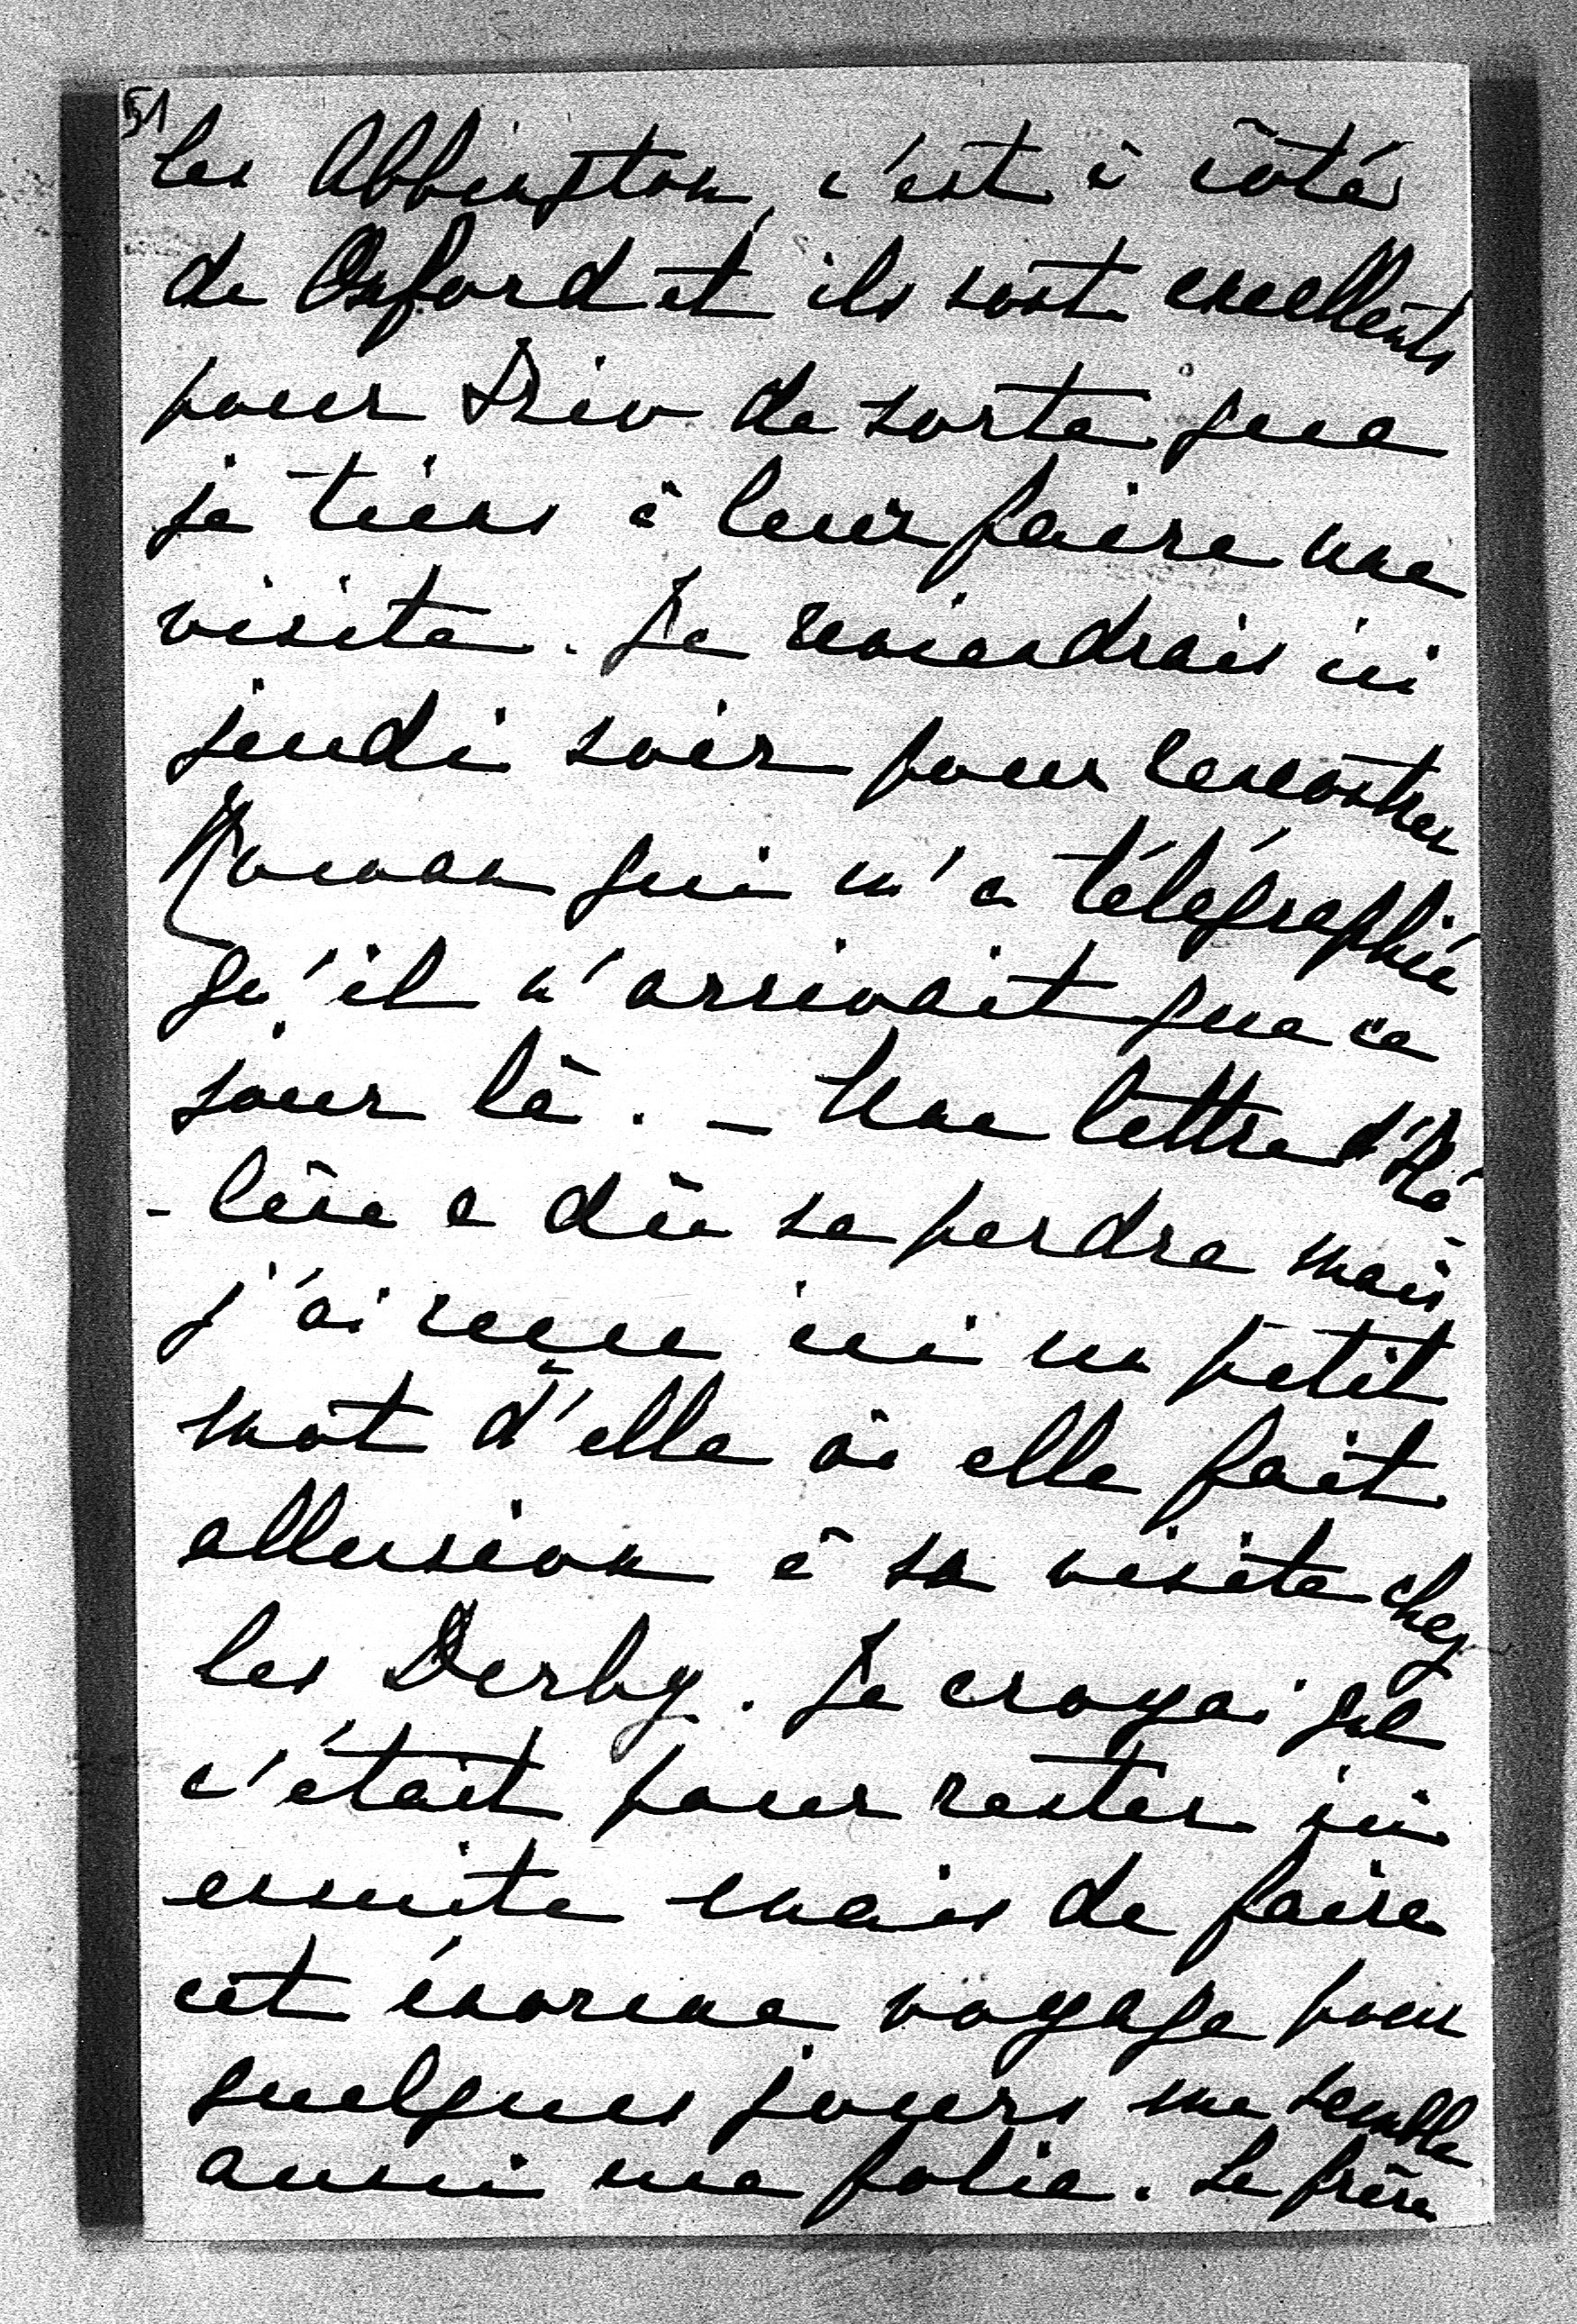 51
les Abbington, c'est à côté
de Oxford et ils sont excellents
pour de sorte que
je tiens à leur faire une
visite. Je reviendrais ici
jeudi soir pour rencontrer
qui m'a télégraphié
qu'il n'arrivait que ce
jour là. - Une lettre d'Hé
-lène a dû se perdre mais
j'ai reçue ici un petit
mot d'elle où elle fait
allusion à sa visite chez
les Derby. Je croyai que
c'était pour rester ici
ensuite mais de faire
cet énorme voyage pour
quelques jours me semble
aussi une folie. Le frère